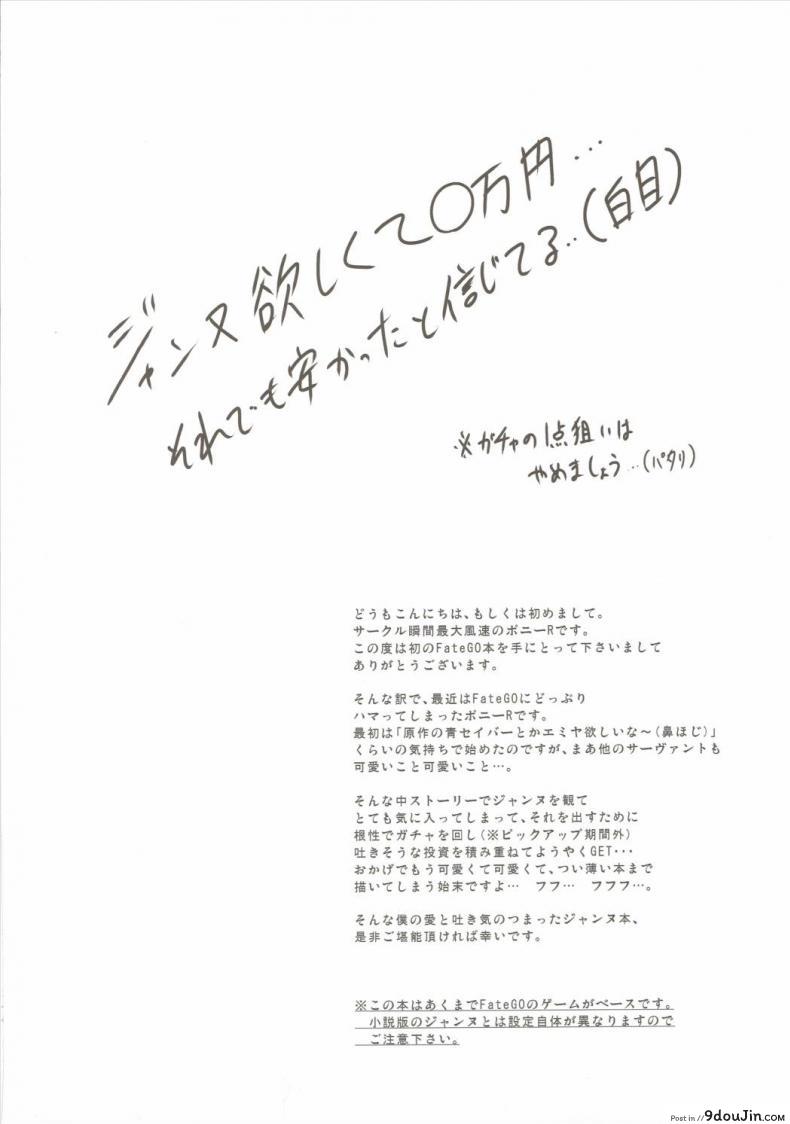 ジャンヌ欲しくて〇万円…
それでも安かったと信じてる‥(白目)
※ガチャの1点狙いは
やめましょう…(パタリ)
どうもこんにちは、もしくは初めまして。
サークル瞬間最大風速のポニーRです。
この度は初のFateGO本を手にとって下さいまして
ありがとうございます。
そんな訳で、最近はFateGOにどっぷり
ハマってしまったポニーRです。
最初は「原作の青セイバーとかエミヤ欲しいな～(鼻ほじ)」
くらいの気持ちで始めたのですが、まあ他のサーヴァントも
可愛いこと可愛いこと…。
そんな中ストーリーでジャンヌを観て
とても気に入ってしまって、それを出すために
根性でガチャを回し(※ピックアップ期間外)
吐きそうな投資を積み重ねてようやくGET･･･
おかげでもう可愛くて可愛くて、つい薄い本まで
描いてしまう始末ですよ… フフ… フフフ…。
そんな僕の愛と吐き気のつまったジャンヌ本、
是非ご堪能頂ければ幸いです。
※この本はあくまでFateGOのゲームがベースです。
小説版のジャンヌとは設定自体が異なりますので
ご注意下さい。
Post in // 9douJin.com